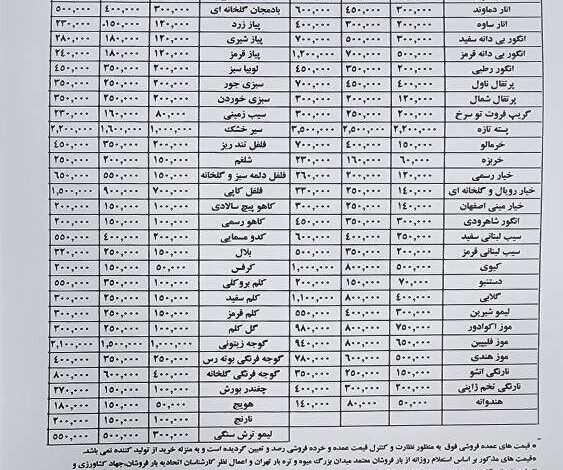 انار دماوند ۳۰۰,۰۰۰ ۴۵۰,۰۰۰ ۶۰۰,۰۰۰ بادمجان گلخانه ای ۳۰۰,۰۰۰ ۴۰۰,۰۰۰ ۵۰۰,۰۰۰
انار ساوه ۲۰۰,۰۰۰ ۳۰۰,۰۰۰ ۴۰۰,۰۰۰ پیاز زرد ۱۲۰,۰۰۰ ۱۵۰,۰۰۰ ۲۳۰,۰۰۰
انگور بی دانه سفید ۳۰۰,۰۰۰ ۵۰۰,۰۰۰ ۷۰۰,۰۰۰ پیاز شیری ۱۲۰,۰۰۰ ۱۸۰,۰۰۰ ۲۸۰,۰۰۰
انگور بی دانه قرمز ۵۰۰,۰۰۰ ۷۰۰,۰۰۰ ۱,۲۰۰,۰۰۰ پیاز قرمز ۱۲۰,۰۰۰ ۱۸۰,۰۰۰ ۲۴۰,۰۰۰
انگور رطبی ۲۰۰,۰۰۰ ۳۵۰,۰۰۰ ۴۵۰,۰۰۰ لوبیا سبز ۲۰۰,۰۰۰ ۳۵۰,۰۰۰ ۴۵۰,۰۰۰
پرتقال ناول ۳۵۰,۰۰۰ ۴۵۰,۰۰۰ ۷۰۰,۰۰۰ سبزی جور ۲۰۰,۰۰۰ ۲۵۰,۰۰۰ ۳۵۰,۰۰۰
پرتقال شمال ۱۲۰,۰۰۰ ۲۰۰,۰۰۰ ۳۰۰,۰۰۰ سبزی خوردن ۲۰۰,۰۰۰ ۲۵۰,۰۰۰ ۳۵۰,۰۰۰
گریپ فروت تو سرخ ۲۰۰,۰۰۰ ۲۵۰,۰۰۰ ۳۰۰,۰۰۰ سیب زمینی ۸۰,۰۰۰ ۱۶۰,۰۰۰ ۲۳۰,۰۰۰
پسته تازه ۲,۲۰۰,۰۰۰ ۲,۵۰۰,۰۰۰ ۳,۵۰۰,۰۰۰ سیر خشک ۱,۰۰۰,۰۰۰ ۱,۶۰۰,۰۰۰ ۲,۲۰۰,۰۰۰
خرمالو ۱۵۰,۰۰۰ ۴۰۰,۰۰۰ ۷۰۰,۰۰۰ فلفل تند ریز ۲۰۰,۰۰۰ ۳۵۰,۰۰۰ ۴۵۰,۰۰۰
خربزه ۶۰,۰۰۰ ۱۶۰,۰۰۰ ۲۳۰,۰۰۰ شلغم ۱۵۰,۰۰۰ ۲۰۰,۰۰۰ ۲۵۰,۰۰۰
خیار رسمی ۱۲۰,۰۰۰ ۲۰۰,۰۰۰ ۲۶۰,۰۰۰ فلفل دلمه سبز و گلخانه ۱۵۰,۰۰۰ ۵۵۰,۰۰۰ ۶۵۰,۰۰۰
خیار رویال و گلخانه ای ۱۴۰,۰۰۰ ۲۵۰,۰۰۰ ۳۳۰,۰۰۰ فلفل کاپی ۷۰۰,۰۰۰ ۹۰۰,۰۰۰ ۱,۵۰۰,۰۰۰
خیار مینی اصفهان ۱۴۰,۰۰۰ ۲۵۰,۰۰۰ ۳۰۰,۰۰۰ کاهو پیچ سالادی ۱۰۰,۰۰۰ ۱۵۰,۰۰۰ ۲۰۰,۰۰۰
انگور شاهرودی ۳۰۰,۰۰۰ ۳۵۰,۰۰۰ ۴۵۰,۰۰۰ کاهو رسمی ۱۰۰,۰۰۰ ۱۵۰,۰۰۰ ۲۰۰,۰۰۰
سیب لبنانی سفید ۲۵۰,۰۰۰ ۴۰۰,۰۰۰ ۶۰۰,۰۰۰ کدو مسمایی ۲۰۰,۰۰۰ ۴۰۰,۰۰۰ ۵۵۰,۰۰۰
سیب لبنانی قرمز ۲۰۰,۰۰۰ ۳۵۰,۰۰۰ ۵۰۰,۰۰۰ بلال ۱۵۰,۰۰۰ ۲۵۰,۰۰۰ ۳۲۰,۰۰۰
کیوی ۵۰۰,۰۰۰ ۸۰۰,۰۰۰ ۱,۰۰۰,۰۰۰ کرفس ۵۰,۰۰۰ ۱۵۰,۰۰۰ ۲۰۰,۰۰۰
دستنبو ۷۰,۰۰۰ ۱۵۰,۰۰۰ ۲۰۰,۰۰۰ کلم بروکلی ۱۰۰,۰۰۰ ۳۵۰,۰۰۰ ۵۵۰,۰۰۰
گلابی ۴۰۰,۰۰۰ ۸۰۰,۰۰۰ ۱,۱۰۰,۰۰۰ کلم سفید ۱۰۰,۰۰۰ ۲۵۰,۰۰۰ ۳۰۰,۰۰۰
لیمو شیرین ۳۰۰,۰۰۰ ۴۰۰,۰۰۰ ۵۵۰,۰۰۰ کلم قرمز ۱۰۰,۰۰۰ ۱۵۰,۰۰۰ ۲۵۰,۰۰۰
موز اکوادور ۷۵۰,۰۰۰ ۸۰۰,۰۰۰ ۹۸۰,۰۰۰ گل کلم ۱۰۰,۰۰۰ ۲۵۰,۰۰۰ ۳۰۰,۰۰۰
موز فلیپین ۶۵۰,۰۰۰ ۸۰۰,۰۰۰ ۹۴۰,۰۰۰ گوجه زیتونی ۱,۰۰۰,۰۰۰ ۱,۵۰۰,۰۰۰ ۲,۱۰۰,۰۰۰
موز هندی ۵۰۰,۰۰۰ ۶۰۰,۰۰۰ ۷۸۰,۰۰۰ گوجه فرنگی بوته رس ۲۵۰,۰۰۰ ۳۵۰,۰۰۰ ۴۰۰,۰۰۰
نارنگی انشو ۱۵۰,۰۰۰ ۲۵۰,۰۰۰ ۳۵۰,۰۰۰ گوجه فرنگی گلخانه ۴۰۰,۰۰۰ ۶۰۰,۰۰۰ ۸۰۰,۰۰۰
نارنگی تخم ژاپنی ۲۰۰,۰۰۰ ۳۰۰,۰۰۰ ۴۰۰,۰۰۰ چغندر بورش ۱۰۰,۰۰۰ ۱۵۰,۰۰۰ ۲۷۰,۰۰۰
هندوانه ۵۰,۰۰۰ ۸۰,۰۰۰ ۱۴۰,۰۰۰ هویج ۵۰,۰۰۰ ۱۵۰,۰۰۰ ۱۸۰,۰۰۰
نارنج ۱۰۰,۰۰۰ ۱۵۰,۰۰۰ ۲۰۰,۰۰۰
لیمو ترش سنگی ۳۰۰,۰۰۰ ۵۰۰,۰۰۰ ۵۵۰,۰۰۰
* قیمت های عمده فروشی فوق به منظور نظارت و کنترل قیمت عمده و خرده فروشی رصد و تعیین گردیده است و به منزله خرید از تولید کننده نمی باشد.
* قیمت های مذکور بر اساس فروش روزانه از بار فروشان معتمد میدان بزرگ میوه و تره بار تهران و اعمال نظر کارشناسان اتحادیه بار فروشان،جهاد کشاورزی و